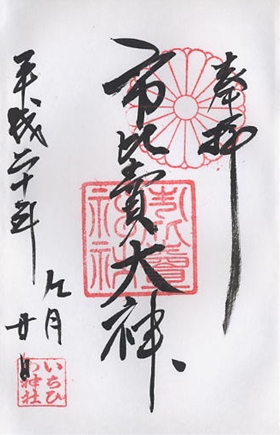 奉拝
市比賣大神
平成二十年
九月
廿日
市比賣神社
いちひ
め神社